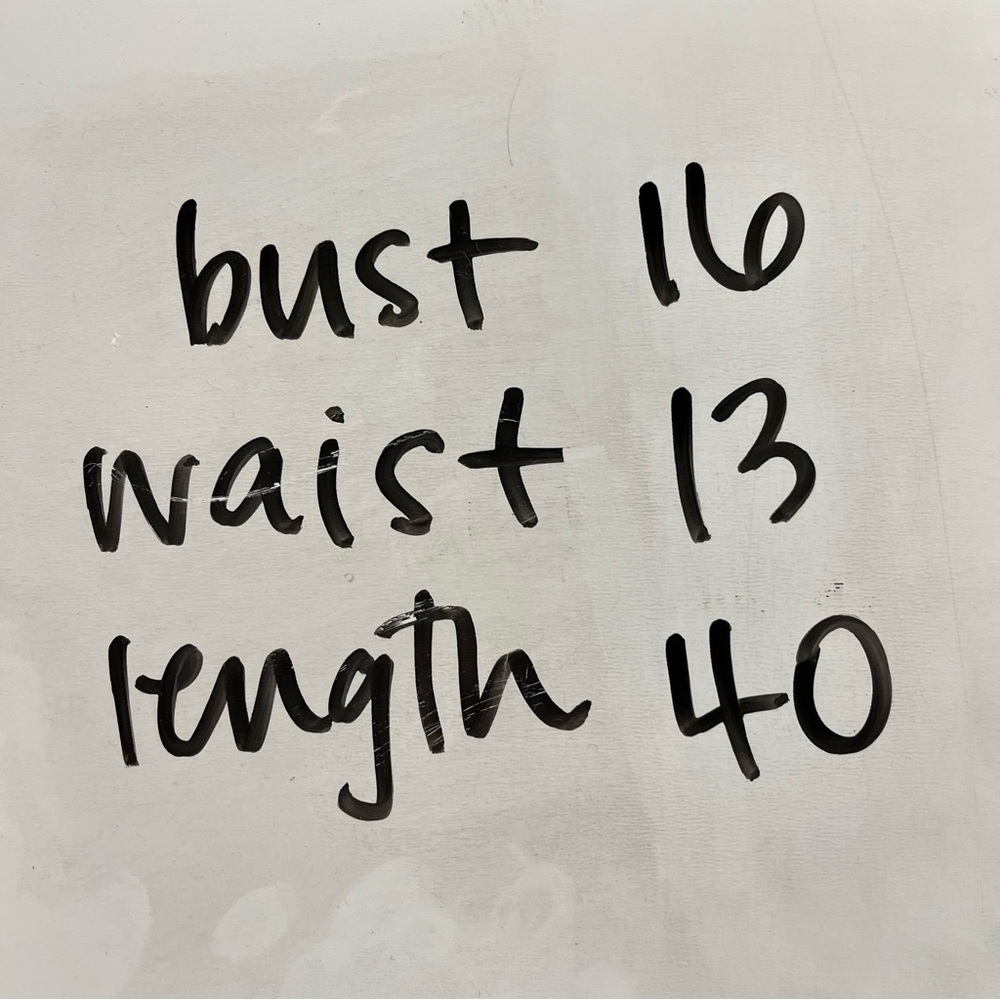 bust 16
waist 13
length 40